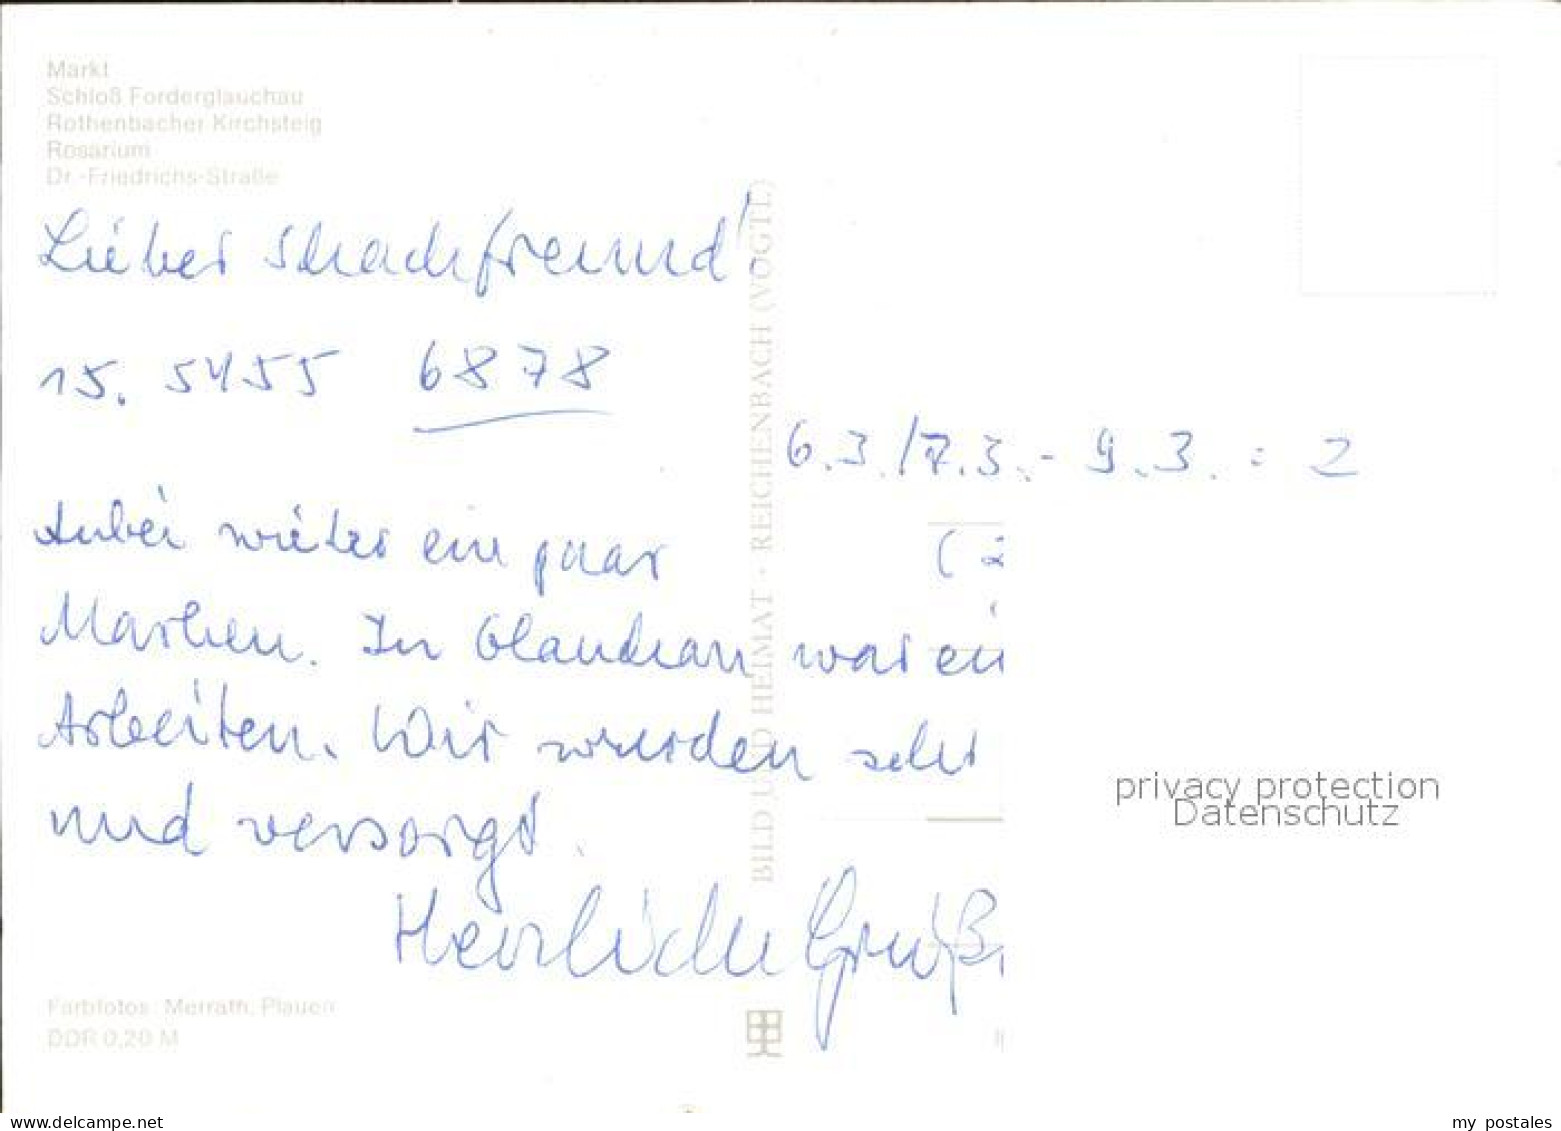 Markt
Schloß Forderglauchau
Rothenbacher Kirchsteig
Rosarium
Dr.-Friedrichs-Straße
Lieber Schachfreund!
15. 5455 6878
6.3./7.3. - 9.3. = 2
(2
Anbei wieder ein paar
Marken. In Glauchau war ein
Arbeiten. Wir wurden sehr
und versorgt.
Herzliche Grüße
BILD UND HEIMAT · REICHENBACH (VOGTL.)
privacy protection
Datenschutz
Farbfotos: Merrath, Plauen
DDR 0,20 M
www.delcampe.net
my_postales